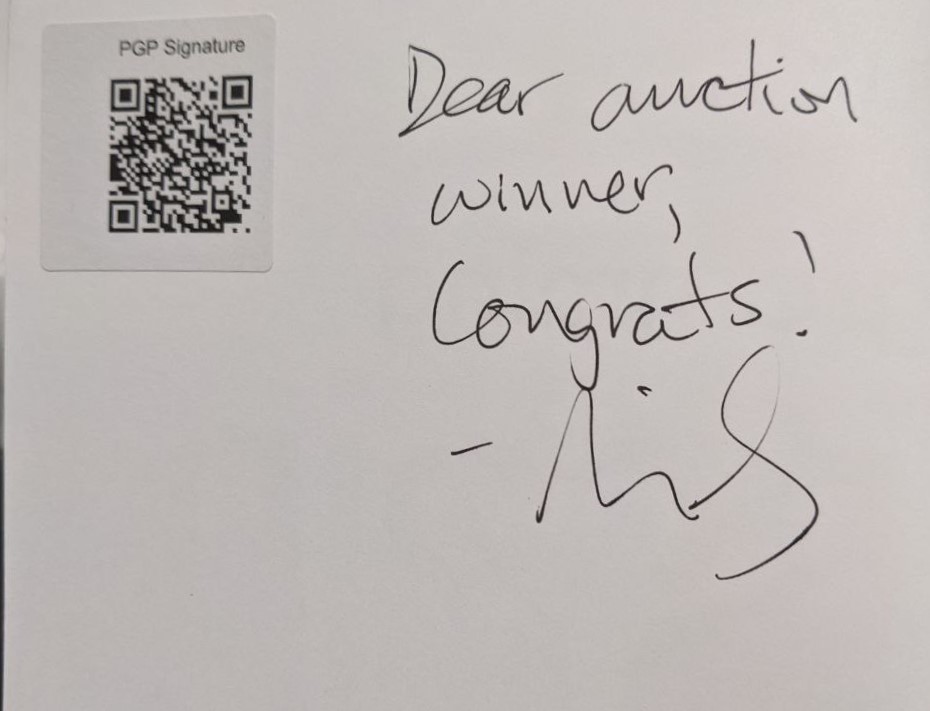 PGP Signature
Dear auction
winner,
Congrats!
-